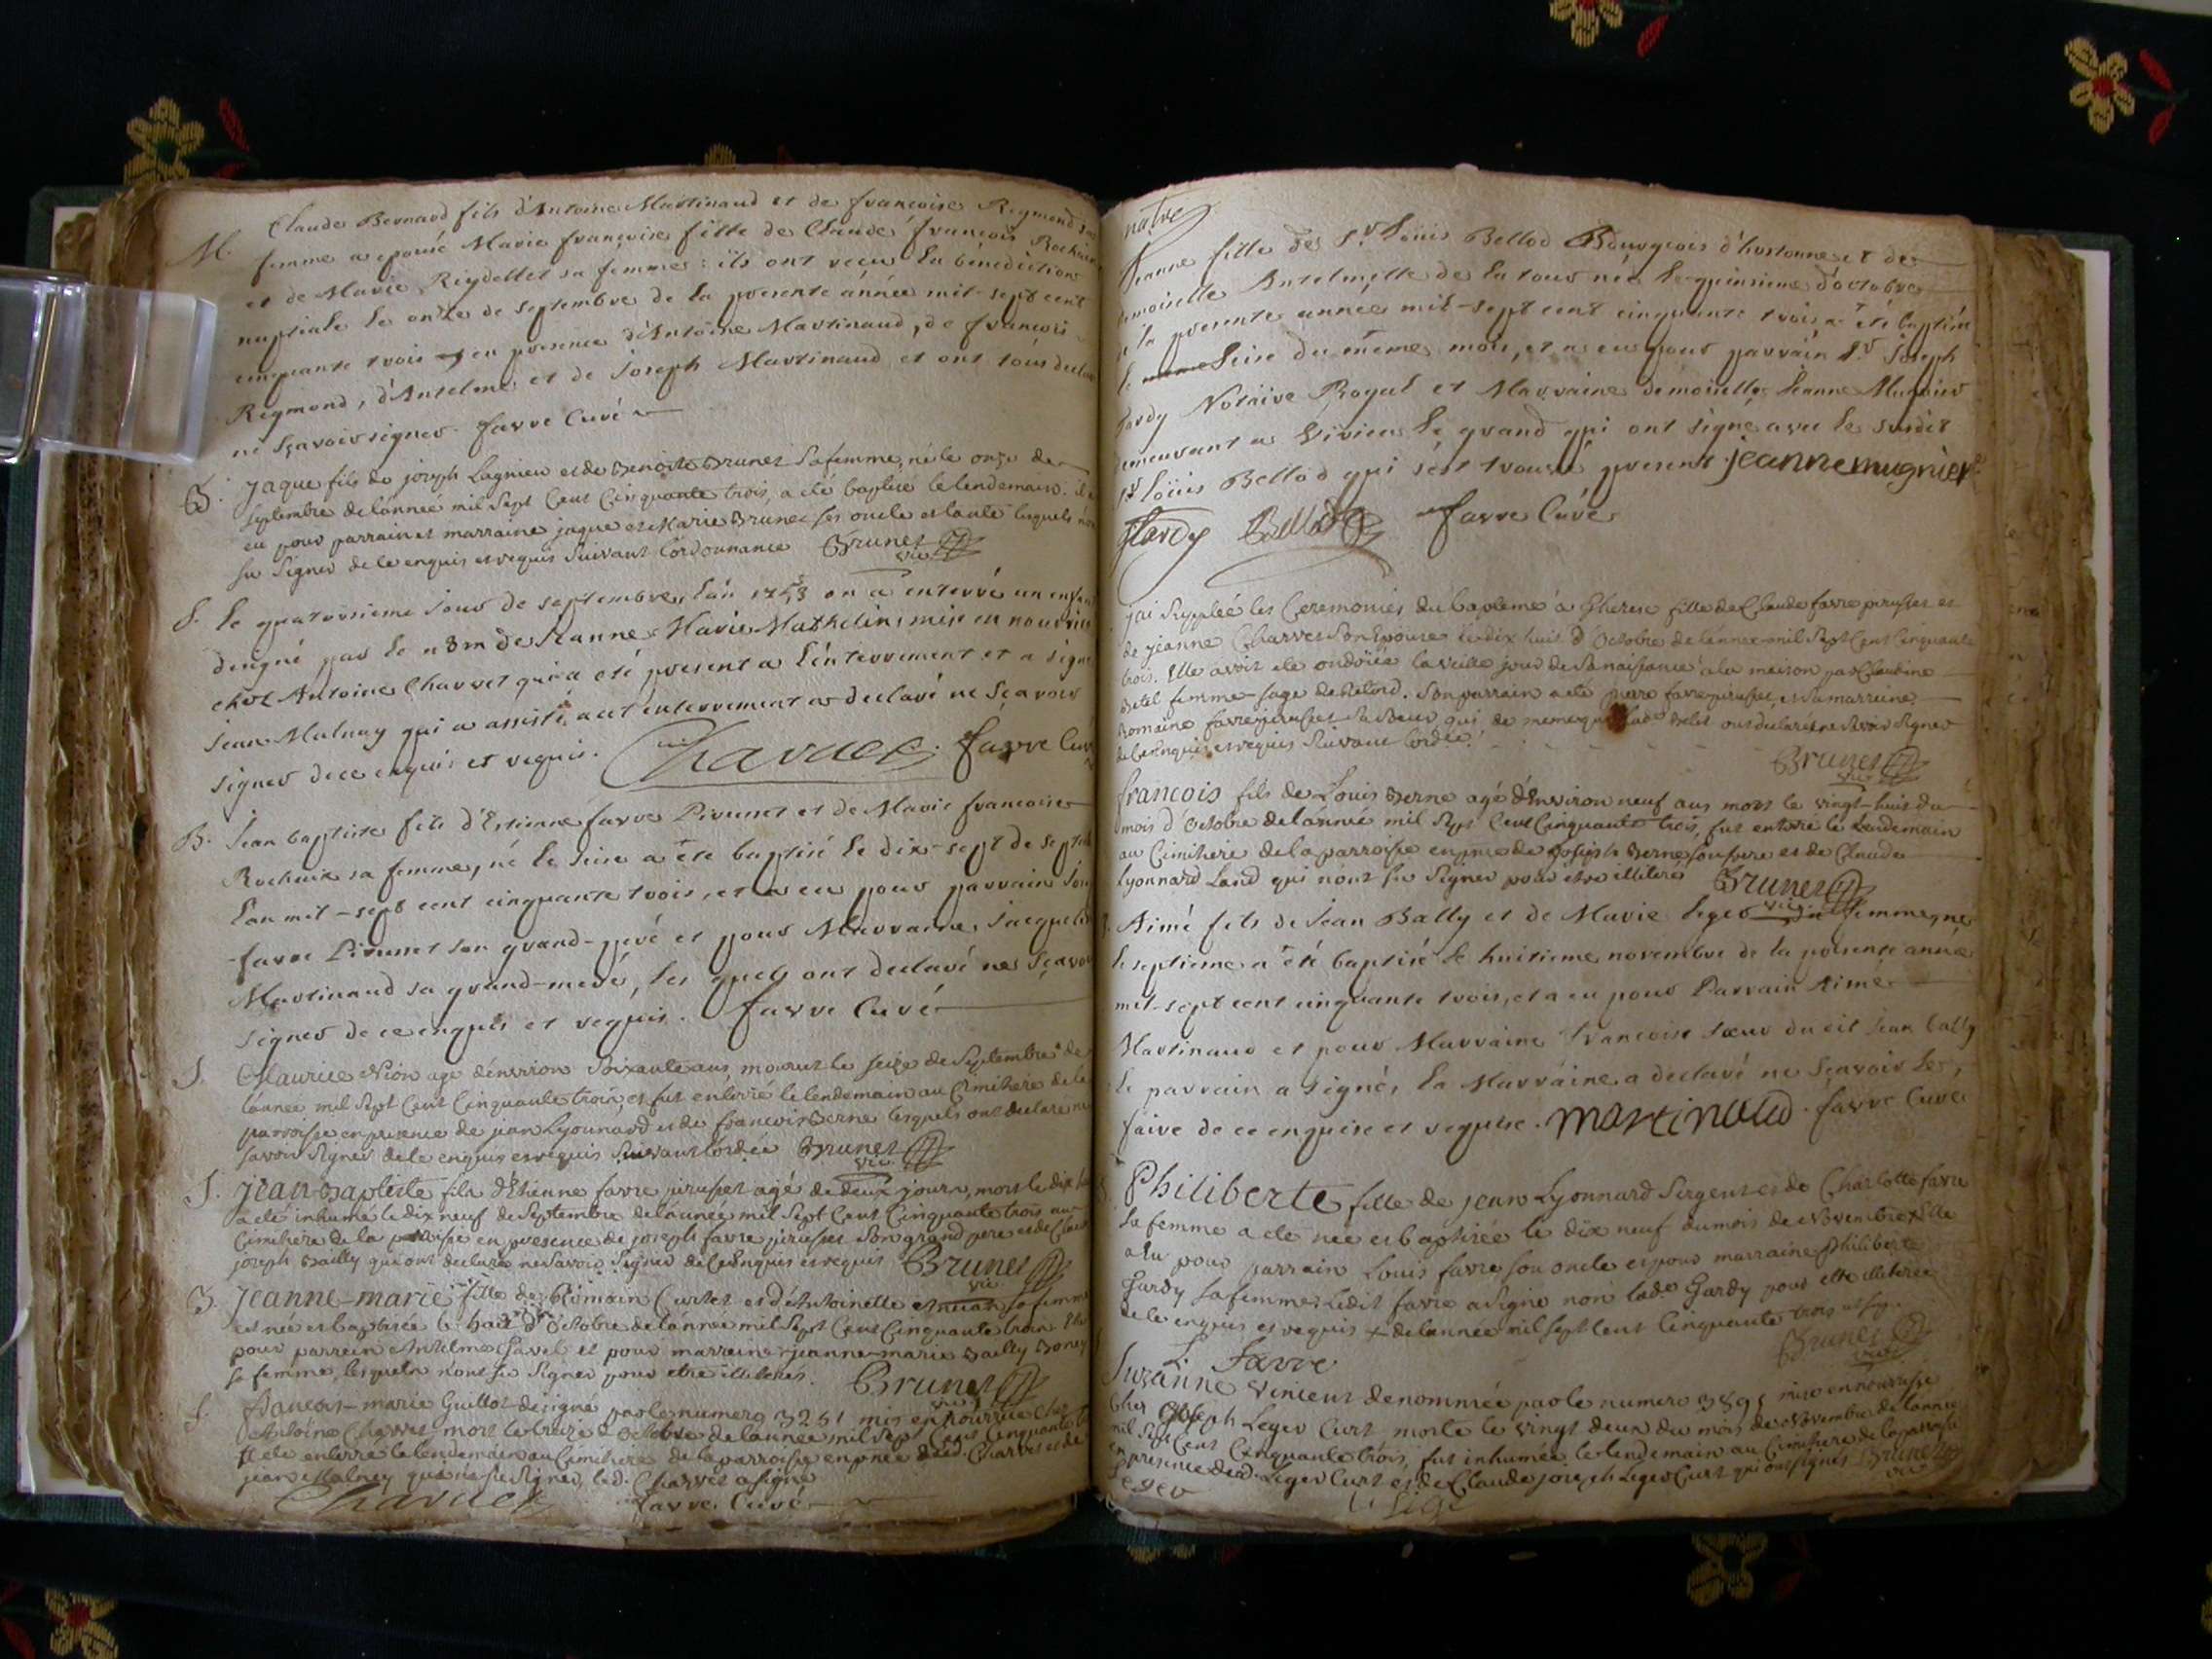 M. Claude Bernard fils d'Antoine Martinaud et de francoise Reymond sa
femme a epousé Marie françoise fille de Claude françois Rochaix
et de Marie Reydellet sa femme : ils ont reçu la bénédiction
nuptiale le onze de septembre de la presente année mil-sept cent
cinquante trois en presence d'Antoine Martinaud, de francois
Reymond, d'Antelme et de Joseph Martinaud et ont tous declaré
ne sçavoir signer. favre Curé
B. jaque fils de joseph Lagnieu et de Benoite Brunet sa femme, né le onze de
septembre de lannée mil sept Cent Cinquante trois, a été baptisé le lendemain. il a
eu pour parrain et marraine jaque et Marie Brunet ses oncle et tante lesquels n'ont
su signer de ce enquis et requis suivant l'ordonnance Brunet
vic
S. le quatorsieme jour de septembre l'an 1753 on a enterré un enfant
designé par le nom de Jeanne Marie Mathelin, mise en nourrice
chez Antoine Charvet qui a été present a l'enterrement et a signé
jean Malnay qui a assisté audit enterrement a declaré ne sçavoir
signer de ce enquis et requis. Charvet favre Curé
B. Jean baptiste fils d'Estienne favre Pirunet et de Marie francoise
Rochaix sa femme, né le seise a été baptisé le dix-sept de septembre
l'an mil-sept cent cinquante trois, et a eu pour parrain
favre Pirunet son grand-peré et pour Marraine Jacqueline
Martinaud sa grand-meré, les quels ont declaré ne sçavoir
signer de ce enquis et requis. favre Curé
S. Maurice Nion agé d'environ soixante ans, mourut le seize de septembre de
lannée mil sept Cent Cinquante trois, et fut enterré le lendemain au Cimithere de la
parroisse en presence de jean Lyonnard et de francois Berne lesquels ont declaré ne
savoir signer de ce enquis et requis suivant lordce Brunet
vic
S. jean-baptiste fils d'Etienne favre agé de deux jours, mort le dix huit
a été inhumé le dix neuf de septembre de lannée mil sept Cent Cinquante trois au
Cimithere de la parroisse en presence de joseph favre son grand pere et de Claude
joseph Bailly qui ont declaré ne savoir signer de ce enquis et requis Brunet
vic
B. jeanne-marie fille de Romain Curtet et d'Antoinette sa femme
est née et baptisée le huit d'octobre de lannée mil sept Cent Cinquante trois. Elle
pour parrein Antelme Chavel et pour marreine jeanne-marie Bailly
sa femme, lesquels n'ont su signer pour etre illiterés. Brunet
vic
S. francois-marie Guillot designé par le numero 3281 mis en nourrice chez
Antoine Charvet mort le treize d'octobre de lannée mil sept Cent Cinquante trois
et a été enterré le lendemain au Cimithere de la parroisse en pnce dud. Charvet et de
jean Malney qui n'a su signer, led. Charvet a signé
Charvet favre Curé
natve
Jeanne fille des Sr Loüis Bellod Bourgeois d'hostonne et de
demoiselle Antelmette de la tour née le quinsieme d'octobre
de la presente année mil-sept cent cinquante trois a été baptisée
le seise du même mois, et a eu pour parrain Sr Joseph
hardy Notaire Royal et Marraine demoiselle Jeanne Mugnier
demeurant a Virieu le grand qui ont signé avec le susdit
Sr Loüis Bellod qui s'est trouvé present jeanne mugnier
Hardy Bellod favre Curé
jai supplée les Ceremonies du bapteme a Therese fille de Claude favre et
de jeanne Charvet son Epouse le dix huit d'octobre de lannée mil sept Cent Cinquante
trois. Elle avoit été ondoïée la veille jour de sa naissance a la maison par Claudine
Betel femme-sage de Retord. Son parrain a été pierre favre et sa marreine
Romaine favre sa soeur qui de meme que lade Betel ont declaré ne savoir signer
de ce enquis et requis suivant lordce.
Brunet
vic
francois fils de Louis Berne agé d'environ neuf ans mort le vingt-huit du
mois d'octobre de lannée mil sept Cent Cinquante trois, fut enterré le lendemain
au Cimithere de la parroisse en pnce de joseph Berne son pere et de Claude
Lyonnard Land qui n'ont su signer pour etre illiteré Brunet
vic
B. Aimé fils de Jean Bally et de Marie Leger sa femme né
le septieme a été baptisé le huitieme novembre de la presente année
mil-sept cent cinquante trois, et a eu pour Parrain Aimé
Martinaud et pour Marraine francoise soeur dudit Jean bally
le parrain a signé, la Marraine a declaré ne sçavoir le
faire de ce enquise et requise. martinaud. favre Curé
Philiberte fille de jean Lyonnard Sergent et de Charlotte favre
sa femme a été née et baptisée le dix neuf du mois de Novembre + Elle
a eu pour parrain Louis favre son oncle et pour marraine Philiberte
Gardy sa femme. Ledit favre a signé non lade Gardy pour etre illiterée
de ce enquis et requis + de lannée mil sept Cent Cinquante trois
L. Favre Brunet
vic
Suzanne Vincent denommée par le numero mise en nourrisse
Chez joseph Leger Curt morte le vingt deux du mois de Novembre de lannée
mil sept Cent Cinquante trois, fut inhumée le lendemain au Cimithere de la parroisse
en presence dud. Leger Curt et de Claude joseph Leger Curt qui ont signés Brunet
vic
Leger